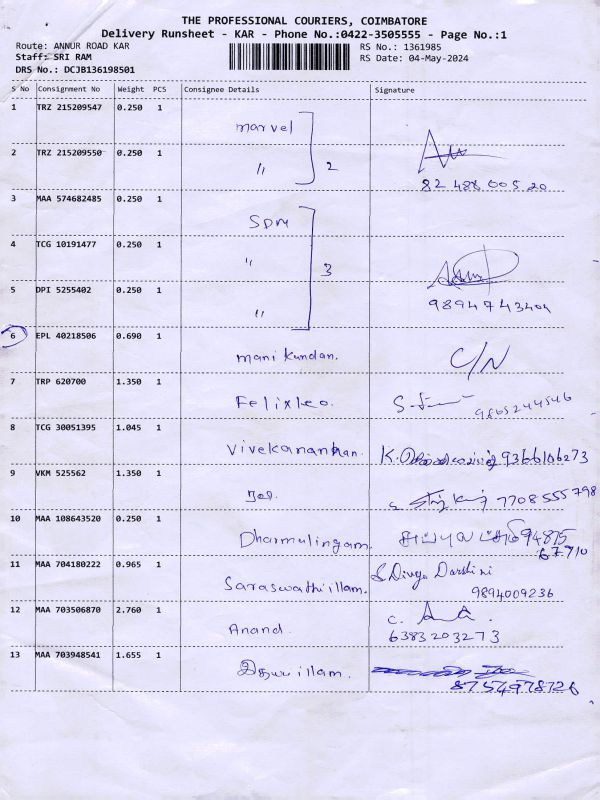 THE PROFESSIONAL COURIERS, COIMBATORE
Delivery Runsheet - KAR - Phone No.:0422-3505555 - Page No.:1
Route: ANNUR ROAD KAR RS No.: 1361985
Staff: SRI RAM RS Date: 04-May-2024
DRS No.: DCJB136198501
S No Consignment No Weight PCS Consignee Details Signature
1 TRZ 215209547 0.250 1 marvel
2 TRZ 215209550 0.250 1 " 2
82 488 005 20
3 MAA 574682485 0.250 1 SDM
4 TCG 10191477 0.250 1 " 3
5 DPI 5255402 0.250 1 "
9894743404
6 EPL 40218506 0.690 1 mani kundan. C/N
7 TRP 620700 1.350 1 Felixleo. 9865244546
8 TCG 30051395 1.045 1 Vivekananthan. 9366106273
9 VKM 525562 1.350 1 7708555798
10 MAA 108643520 0.250 1 Dharmulingam. 94875
67710
11 MAA 704180222 0.965 1 Saraswathi illam. S. Divya Darshini
9894009236
12 MAA 703506870 2.760 1 Anand.
6383203273
13 MAA 703948541 1.655 1 இதய illam.
8754978726